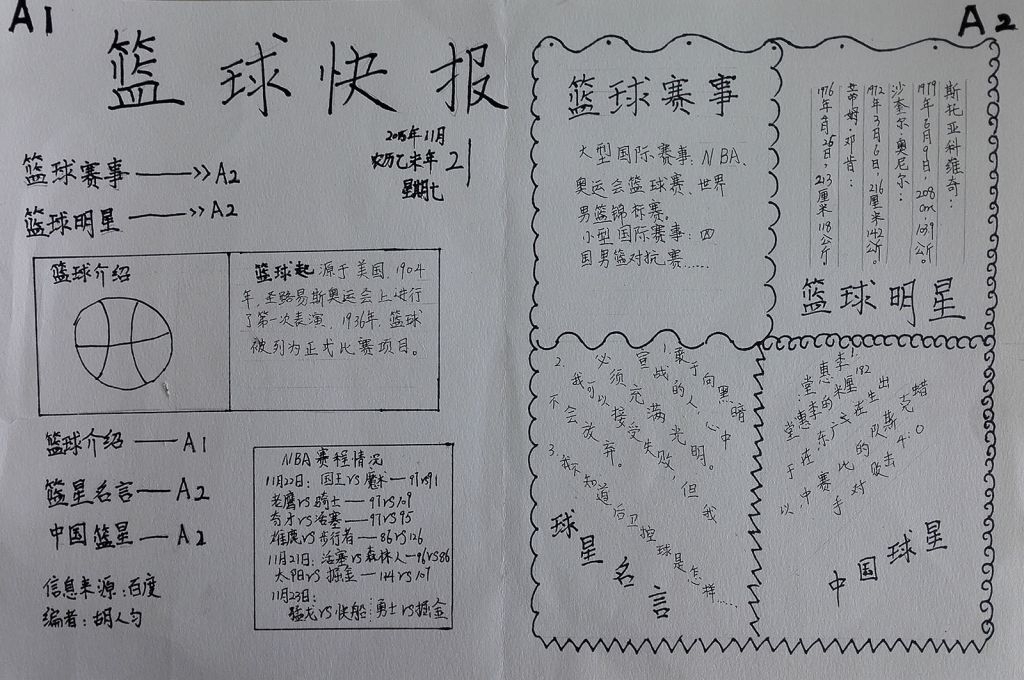 A1
篮球快报
2015年11月
农历乙未年
21
星期七
篮球赛事——>>A2
篮球明星——>>A2
篮球介绍
篮球起源于美国,1904
年,圣路易斯奥运会上进行
了第一次表演,1936年,篮球
被列为正式比赛项目。
篮球介绍——A1
篮星名言——A2
中国篮星——A2
信息来源:百度
编者:胡人匀
NBA赛程情况
11月22日:国王VS魔术—97VS91
老鹰VS骑士—97VS109
奇才VS活塞—97VS95
雄鹿VS步行者—86VS126
11月21日:活塞VS森林人—96VS86
太阳VS掘金—114VS107
11月23日:
猛龙VS快船 勇士VS掘金
A2
篮球赛事
大型国际赛事:NBA、
奥运会篮球赛、世界
男篮锦标赛。
小型国际赛事:四
国男篮对抗赛……
斯托亚科维奇:
1977年6月9日,208cm,103.9公斤。
沙奎尔·奥尼尔:
1972年3月6日,216厘米142公斤。
蒂姆·邓肯:
213厘米118公斤
篮球明星
1.敢于向黑暗
宣战的人,心中
必须充满光明。
2.我可以接受失败,但我
不会放弃。
3.我不知道后卫控球是怎样……
球星名言
中国球星